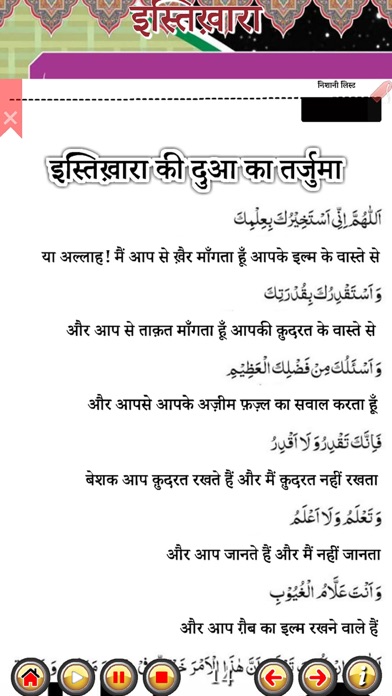 इस्तिख़ारा
निशानी लिस्ट
इस्तिख़ारा की दुआ का तर्जुमा
اَللّٰهُمَّ اِنِّىْ اَسْتَخِيْرُكَ بِعِلْمِكَ
या अल्लाह! मैं आप से ख़ैर माँगता हूँ आपके इल्म के वास्ते से
وَاَسْتَقْدِرُكَ بِقُدْرَتِكَ
और आप से ताक़त माँगता हूँ आपकी क़ुदरत के वास्ते से
وَاَسْئَلُكَ مِنْ فَضْلِكَ الْعَظِيْمِ
और आपसे आपके अज़ीम फ़ज़्ल का सवाल करता हूँ
فَاِنَّكَ تَقْدِرُ وَلَا اَقْدِرُ
बेशक आप क़ुदरत रखते हैं और मैं क़ुदरत नहीं रखता
وَتَعْلَمُ وَلَا اَعْلَمُ
और आप जानते हैं और मैं नहीं जानता
وَاَنْتَ عَلَّامُ الْغُيُوْبِ
और आप ग़ैब का इल्म रखने वाले हैं
14